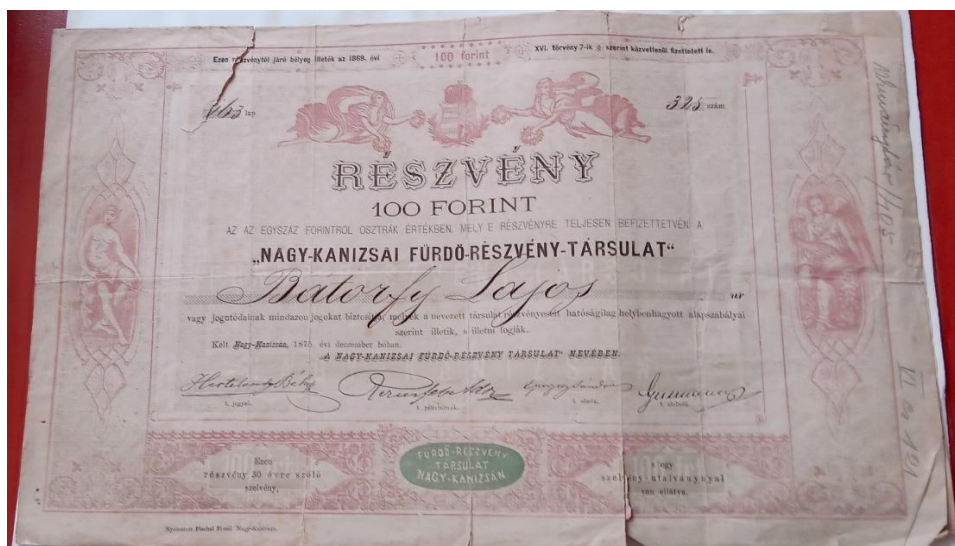 Ezen részvénytől járó bélyeg illeték az 1869. évi
100 forint
XVI. törvény 7-ik § szerint közvetlenül fizettetett le.
463 lap
325 szám
RÉSZVÉNY
100 FORINT
AZ AZ EGYSZÁZ FORINTRÓL OSZTRÁK ÉRTÉKBEN, MELY E RÉSZVÉNYRE TELJESEN BEFIZETTETVÉN A
„NAGY-KANIZSAI FÜRDŐ-RÉSZVÉNY-TÁRSULAT“
Bátorfy Lajos úr
vagy jogutódainak mindazon jogokat biztosítja, melyek a nevezett társulat részvényeseit hatóságilag helybenhagyott alapszabályai
szerint illetik, s illetni fogják.
Kelt Nagy-Kanizsán, 1875 évi december hóban.
„A NAGY-KANIZSAI FÜRDŐ-RÉSZVÉNY TÁRSULAT“ NEVÉBEN.
t. jegyző.
t. pénztárnok.
t. elnök.
FÜRDŐ-RÉSZVÉNY
TÁRSULAT
NAGY-KANIZSÁN
Ezen
részvény 30 évre szóló
szelvény,
s egy
szelvény utalványnyal
van ellátva.
Nyomatott Fischel Fülöp, Nagy-Kanizsán.